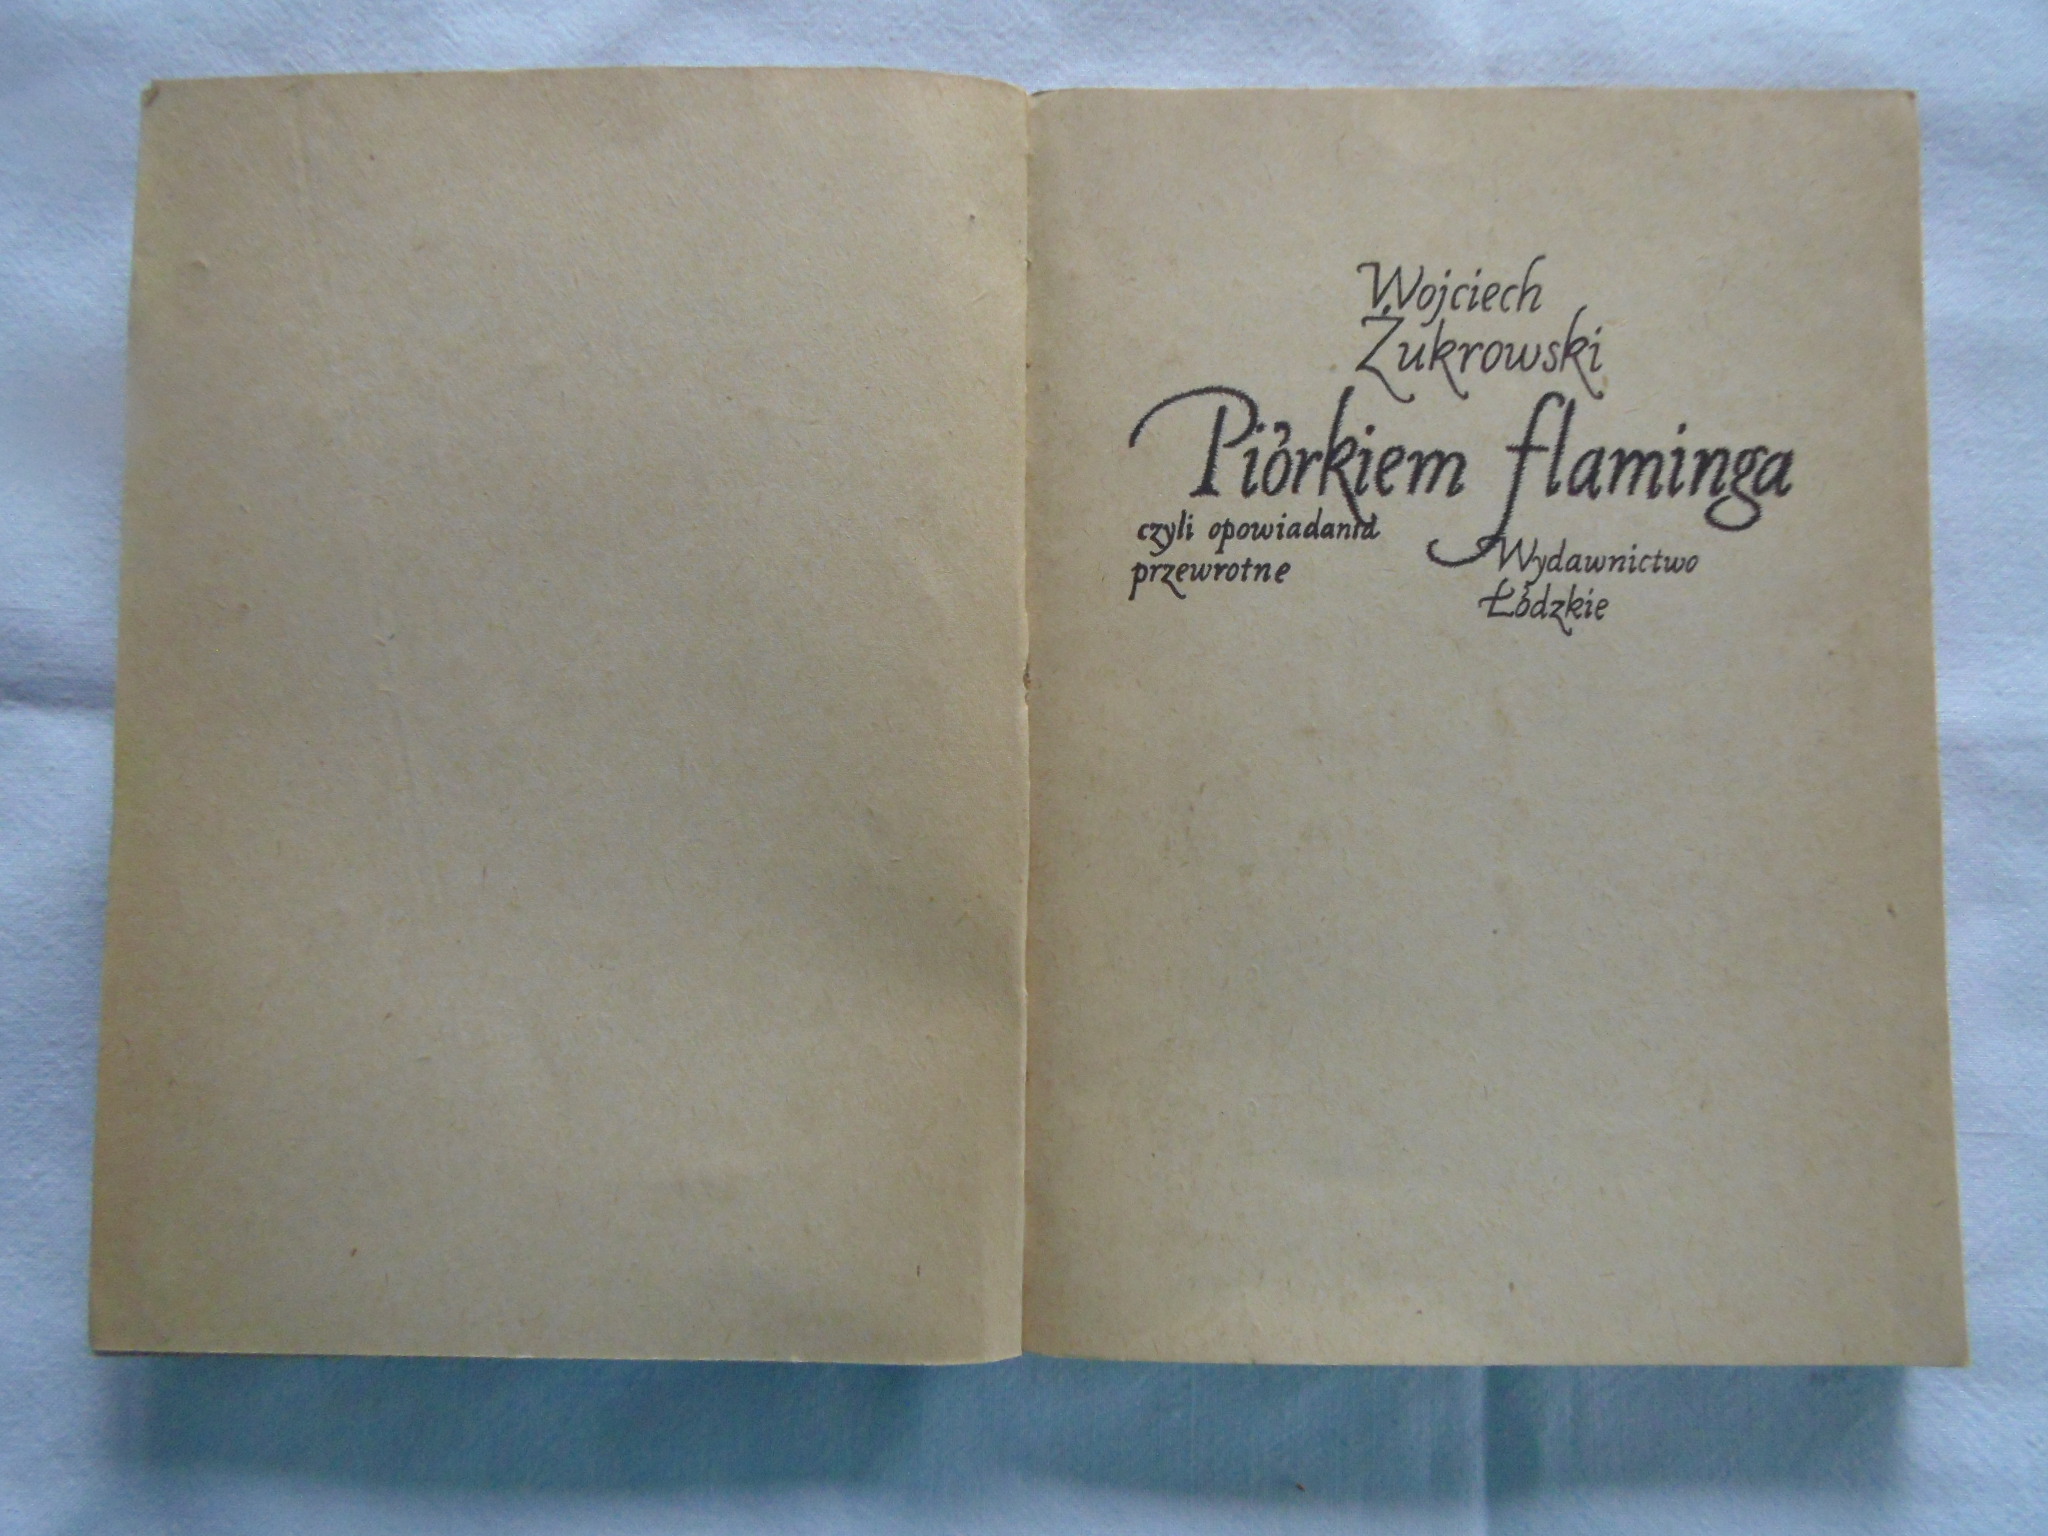 Wojciech
Żukrowski
Piórkiem flaminga
czyli opowiadania
przewrotne
Wydawnictwo
Łódzkie